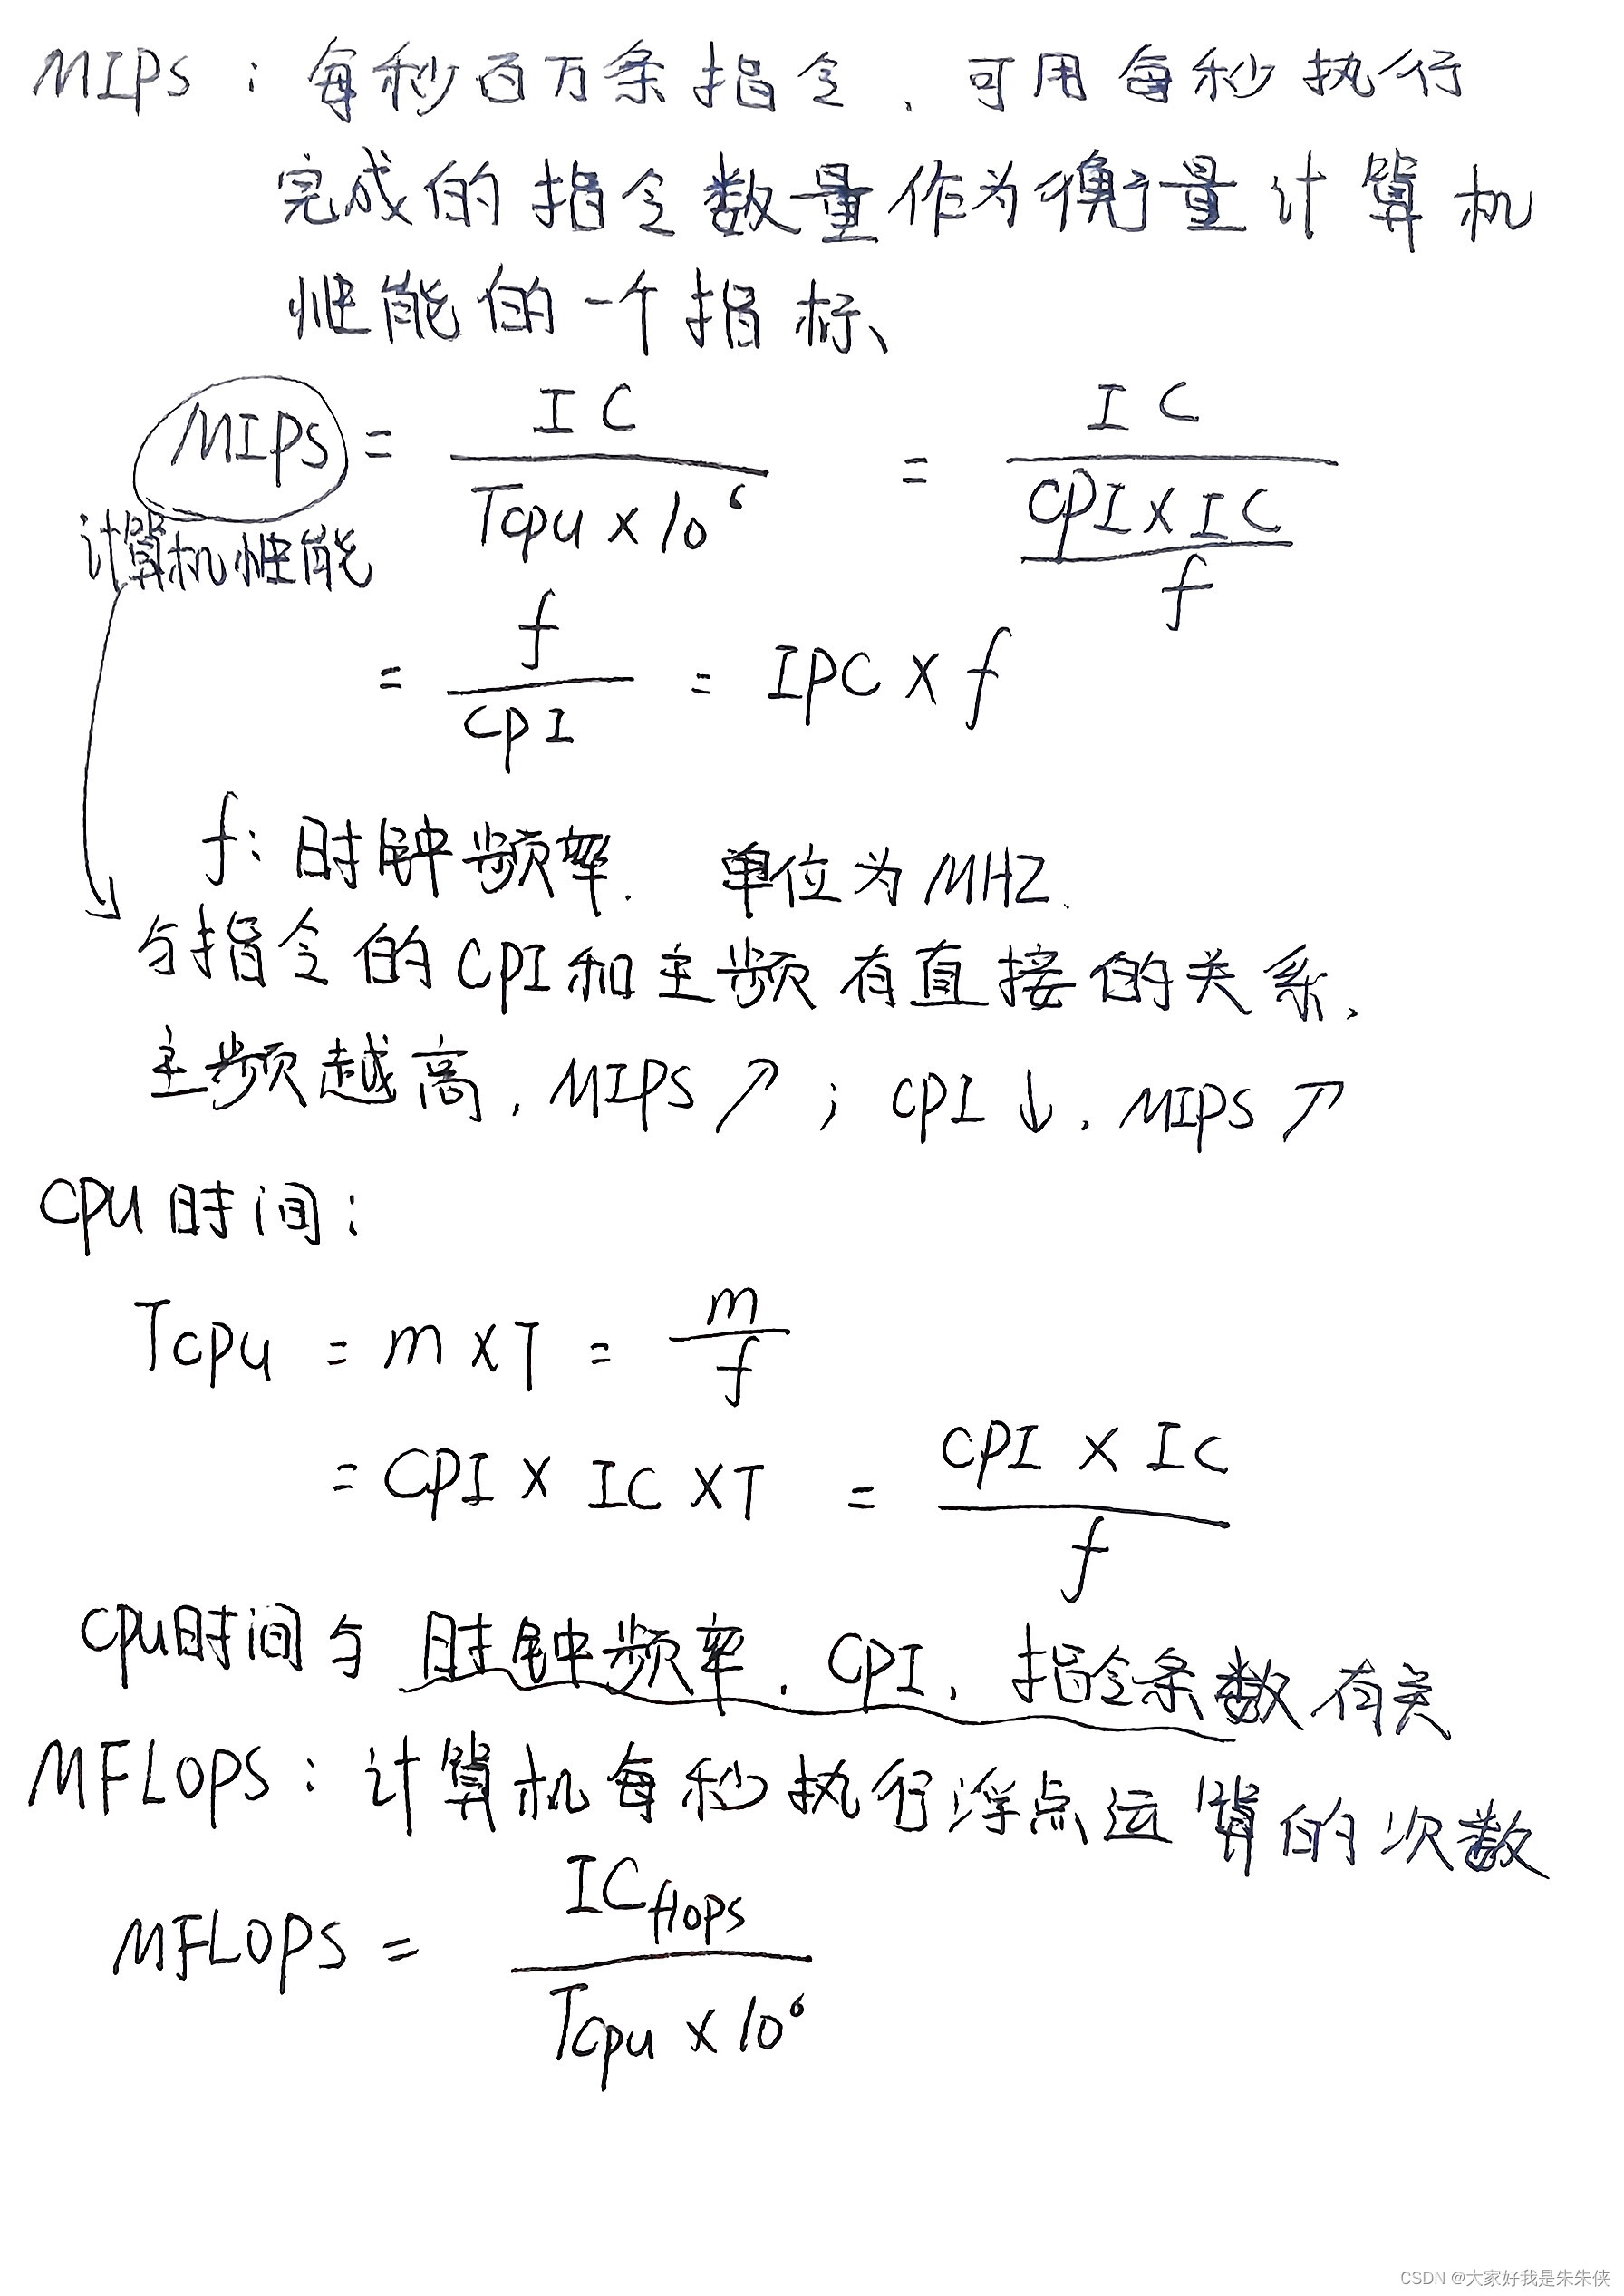 MIPS：每秒百万条指令、可用每秒执行
完成的指令数量作为衡量计算机
性能的一个指标、
MIPS = IC / (Tcpu × 10⁶) = IC / (CPI × IC / f)
计算机性能
= f / CPI = IPC × f
f：时钟频率. 单位为MHZ.
与指令的CPI和主频有直接的关系、
主频越高, MIPS ↗; CPI ↓, MIPS ↗
CPU时间：
Tcpu = m × T = m / f
= CPI × IC × T = CPI × IC / f
CPU时间与时钟频率, CPI, 指令条数有关
MFLOPS：计算机每秒执行浮点运算的次数
MFLOPS = ICflops / (Tcpu × 10⁶)
CSDN @大家好我是朱朱侠